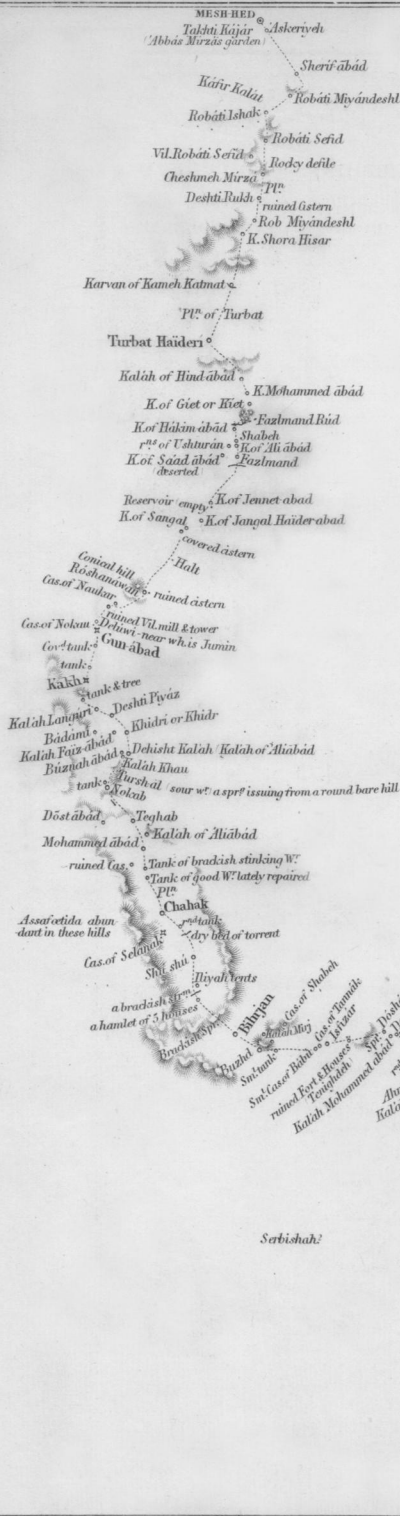 MESH-HED
Takhti Kájár
('Abbás Mirzás garden)
'Askeriyeh
Sherif-ábád
Káfir Kalát
Robáti Miyándeshl
Robáti Ishak
Robáti Sefid
Vil. Robáti Sefid
Rocky defile
Cheshmeh Mirzá
Pln.
Deshti Rukh
ruined Cistern
Rob Miyándeshl
K. Shora Hisar
Karvan of Kameh Katmat
Pln. of Turbat
Turbat Haïderi
Kaláh of Hind-ábád
K. Mohammed ábád
K. of Giet or Kiet
Fazlmand Rúd
K. of Hákim-ábád
Shabeh
rns of Ushturán
K. of 'Ali ábád
K. of Sáad ábád
deserted
Fazlmand
Reservoir empty
K. of Jennet-abad
K. of Sangal
K. of Jangal Haïder-abad
covered cistern
Halt
Conical hill
Róshanawan
ruined cistern
Cas. of Naukar
ruined Vil. mill & tower
Cas. of Nokau
Deluwi-near wh. is Jumin
Covd. tank
Gun-ábad
tank
Kakh
tank & tree
Kaláh Languri
Deshti Piyáz
Bádámi
Khidri or Khidr
Kaláh Faïz-ábád
Búznah ábád
Dehisht Kaláh (Kaláh of Áliábád
Kaláh Khau
Tursh-ab (sour wr.) a sprg. issuing from a round bare hill
tank
Nokab
Dóst ábád
Teghab
Kaláh of Áliábád
Mohammed ábád
ruined Cas.
Tank of brackish stinking Wr.
Tank of good Wr. lately repaired
Pln.
Chahak
Assafœtida abun
dant in these hills
rnd tank
dry bed of torrent
Cas. of Selanak
Shif shú
Iliyah tents
a brackish strm.
a hamlet of 5 houses
Brackish Spr.
Bihrjan
Buzhd
Kaláh Mirj
Cas. of Shabeh
Sml. tank
Sml. Cas. of Bábú
Cas. of Tonnák
Isfizár
ruined Fort & Houses
Tenighdeh
Spr.
Kaláh Mohammed ábád
Serbishah?